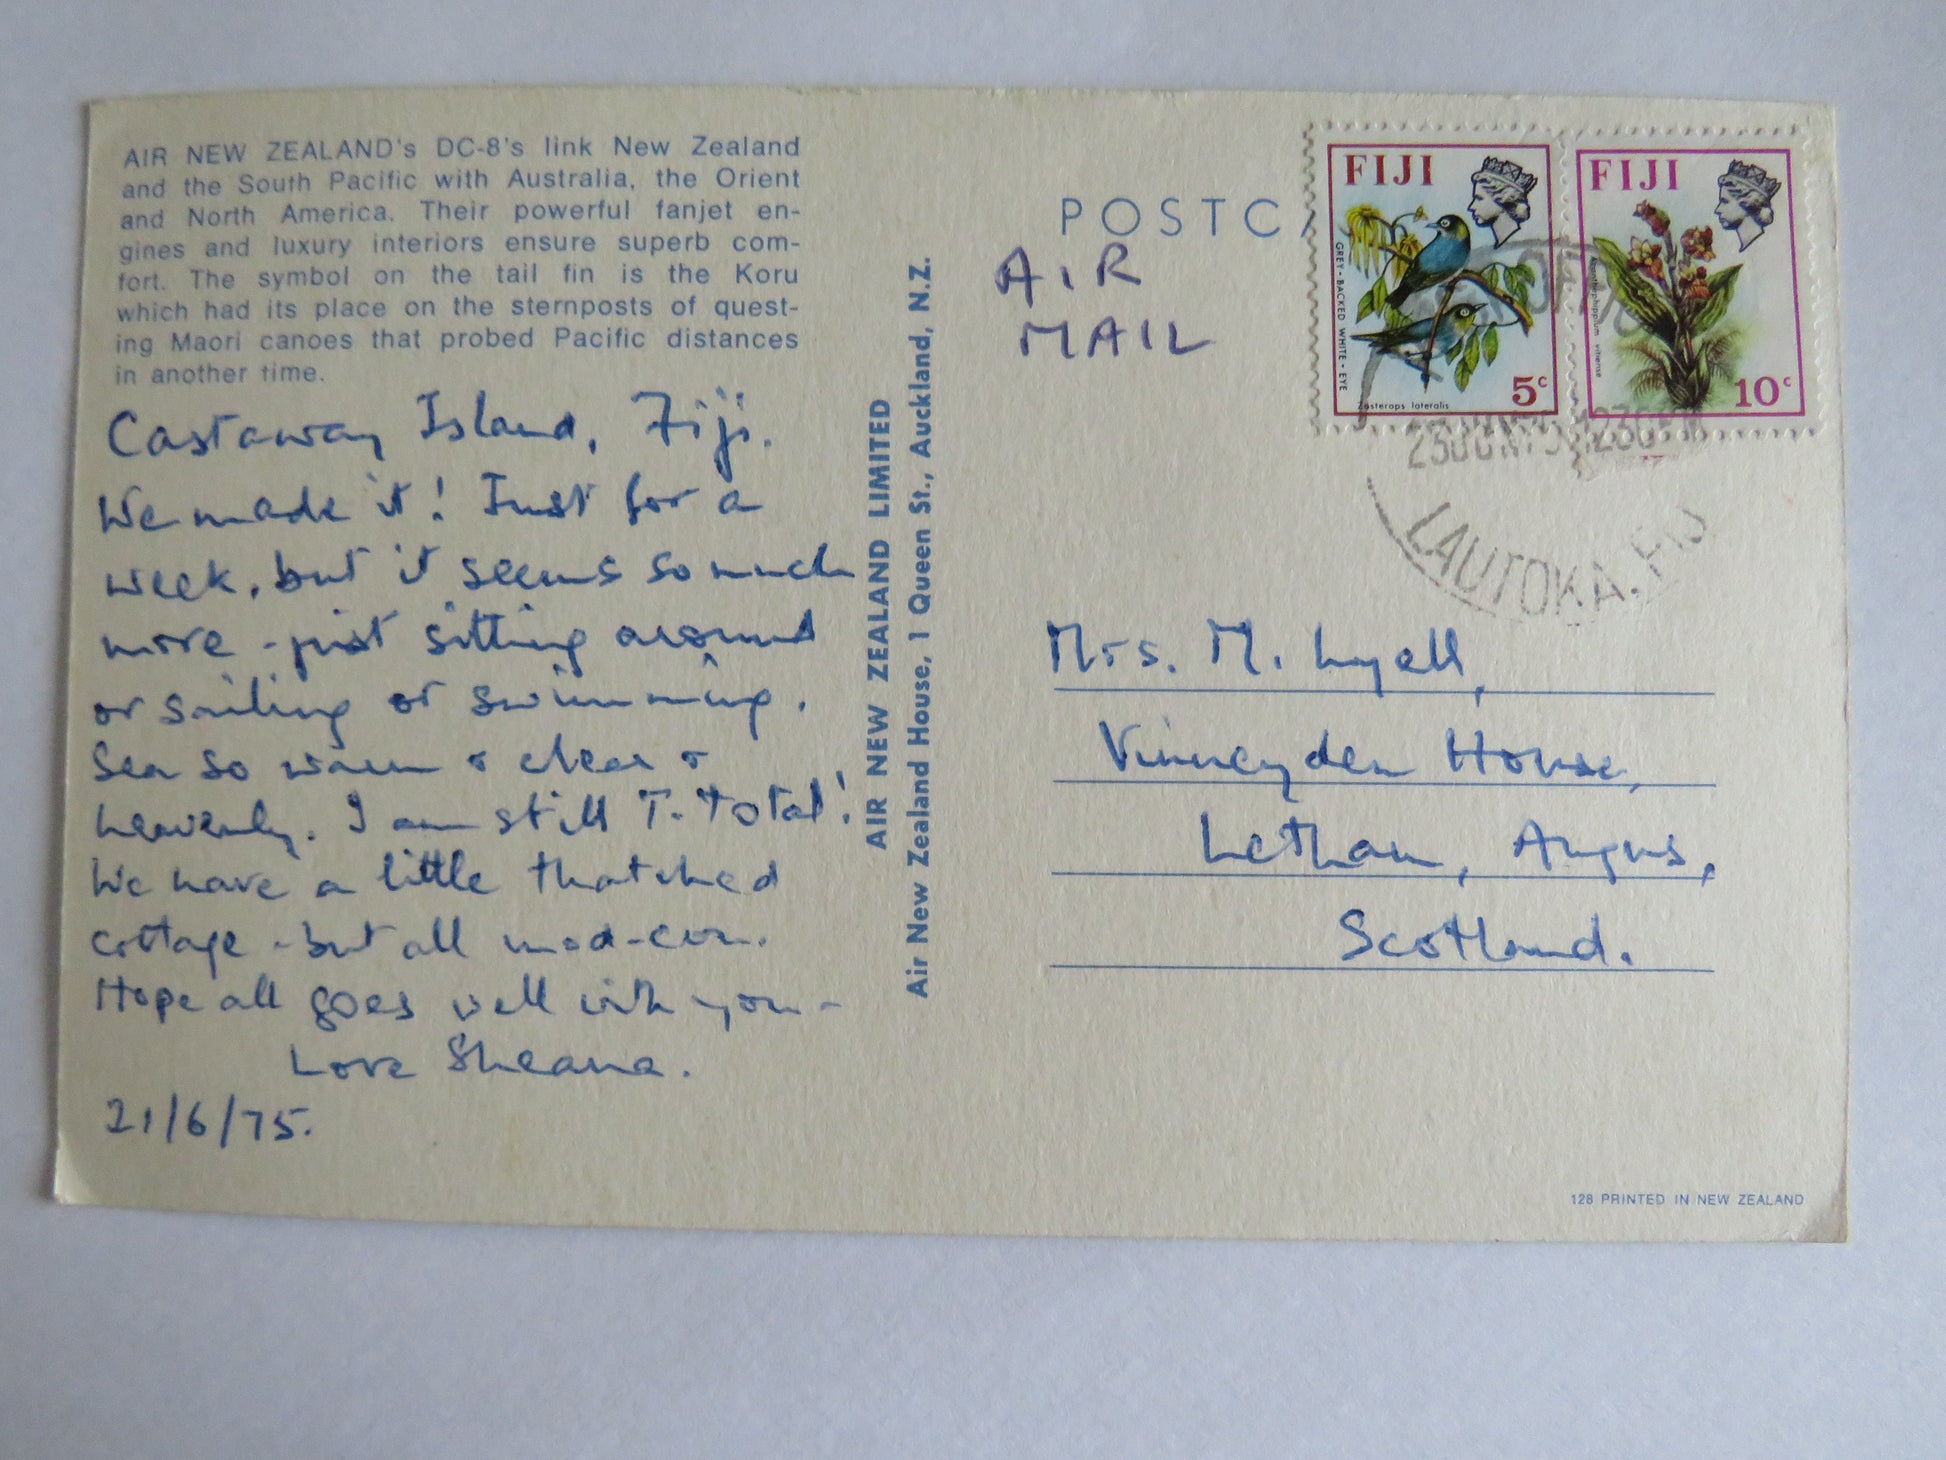 AIR NEW ZEALAND's DC-8's link New Zealand
and the South Pacific with Australia, the Orient
and North America. Their powerful fanjet en-
gines and luxury interiors ensure superb com-
fort. The symbol on the tail fin is the Koru
which had its place on the sternposts of quest-
ing Maori canoes that probed Pacific distances
in another time.
Castaway Island, Fiji.
We made it! Just for a
week, but it seems so much
more - just sitting around
or sailing or swimming.
Sea so warm & clear &
heavenly. I am still T. total!
We have a little thatched
cottage - but all mod-con.
Hope all goes well with you -
Love Sheana.
21/6/75.
AIR NEW ZEALAND LIMITED
Air New Zealand House, 1 Queen St., Auckland, N.Z.
POSTCA
AIR
MAIL
FIJI
GREY-BACKED WHITE-EYE
Zosterops lateralis
5c
FIJI
Acanthephippium vitiense
10c
LAUTOKA. FIJI
Mrs. M. Lyell,
Vinneyden House,
Letham, Angus,
Scotland.
128 PRINTED IN NEW ZEALAND